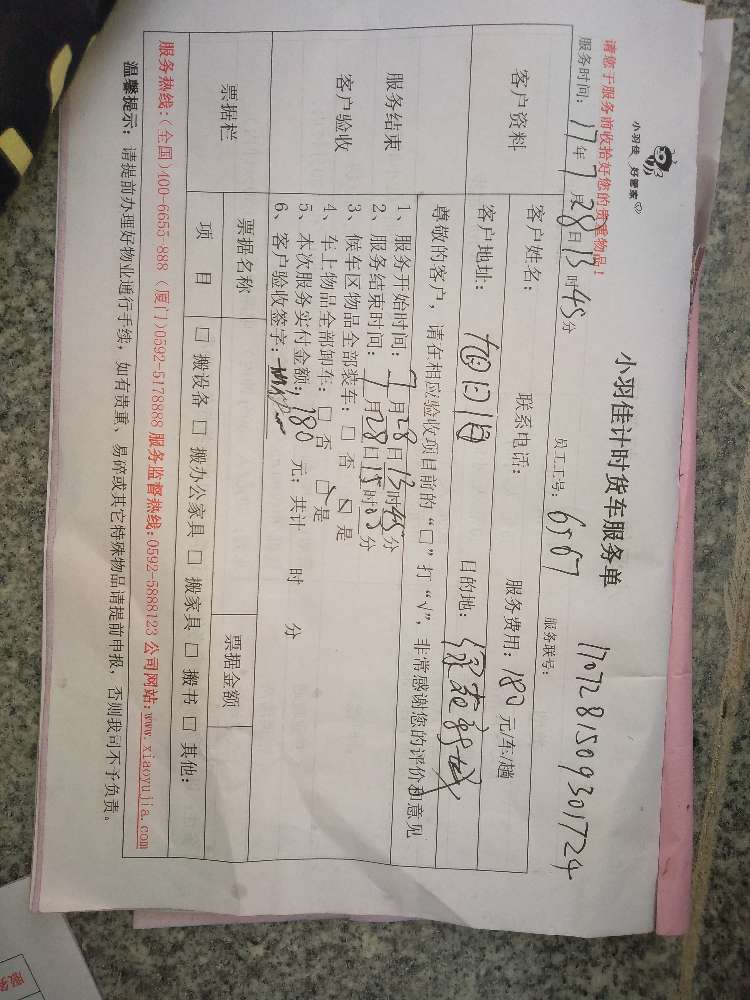 小羽佳 好管家
小羽佳计时货车服务单
1707281509301724
请您于服务前收拾好您的贵重物品!
服务时间: 17年7月28日13时45分 员工工号: 6567 服务联号:
客户资料
客户姓名: 联系电话: 服务费用: 180元/车/趟
客户地址: 目的地:
服务结束
客户验收
尊敬的客户, 请在相应验收项目前的“□”打“√”, 非常感谢您的评价和意见
1、服务开始时间: 7月28日13时45分
2、服务结束时间: 7月28日15时05分
3、候车区物品全部装车: □ 否 ☑ 是
4、车上物品全部卸车: □ 否 ☑ 是
5、本次服务实付金额: 180元; 共计 时 分
6、客户验收签字:
票据栏
票据名称 票据金额
项 目 □ 搬设备 □ 搬办公家具 □ 搬家具 □ 搬书 □ 其他:
服务热线:(全国)400-6655-888 (厦门)0592-5178888 服务监督热线:0592-5888123 公司网站:www.xiaoyujia.com
温馨提示: 请提前办理好物业通行手续, 如有贵重、易碎或其它特殊物品请提前申报, 否则我司不予负责。